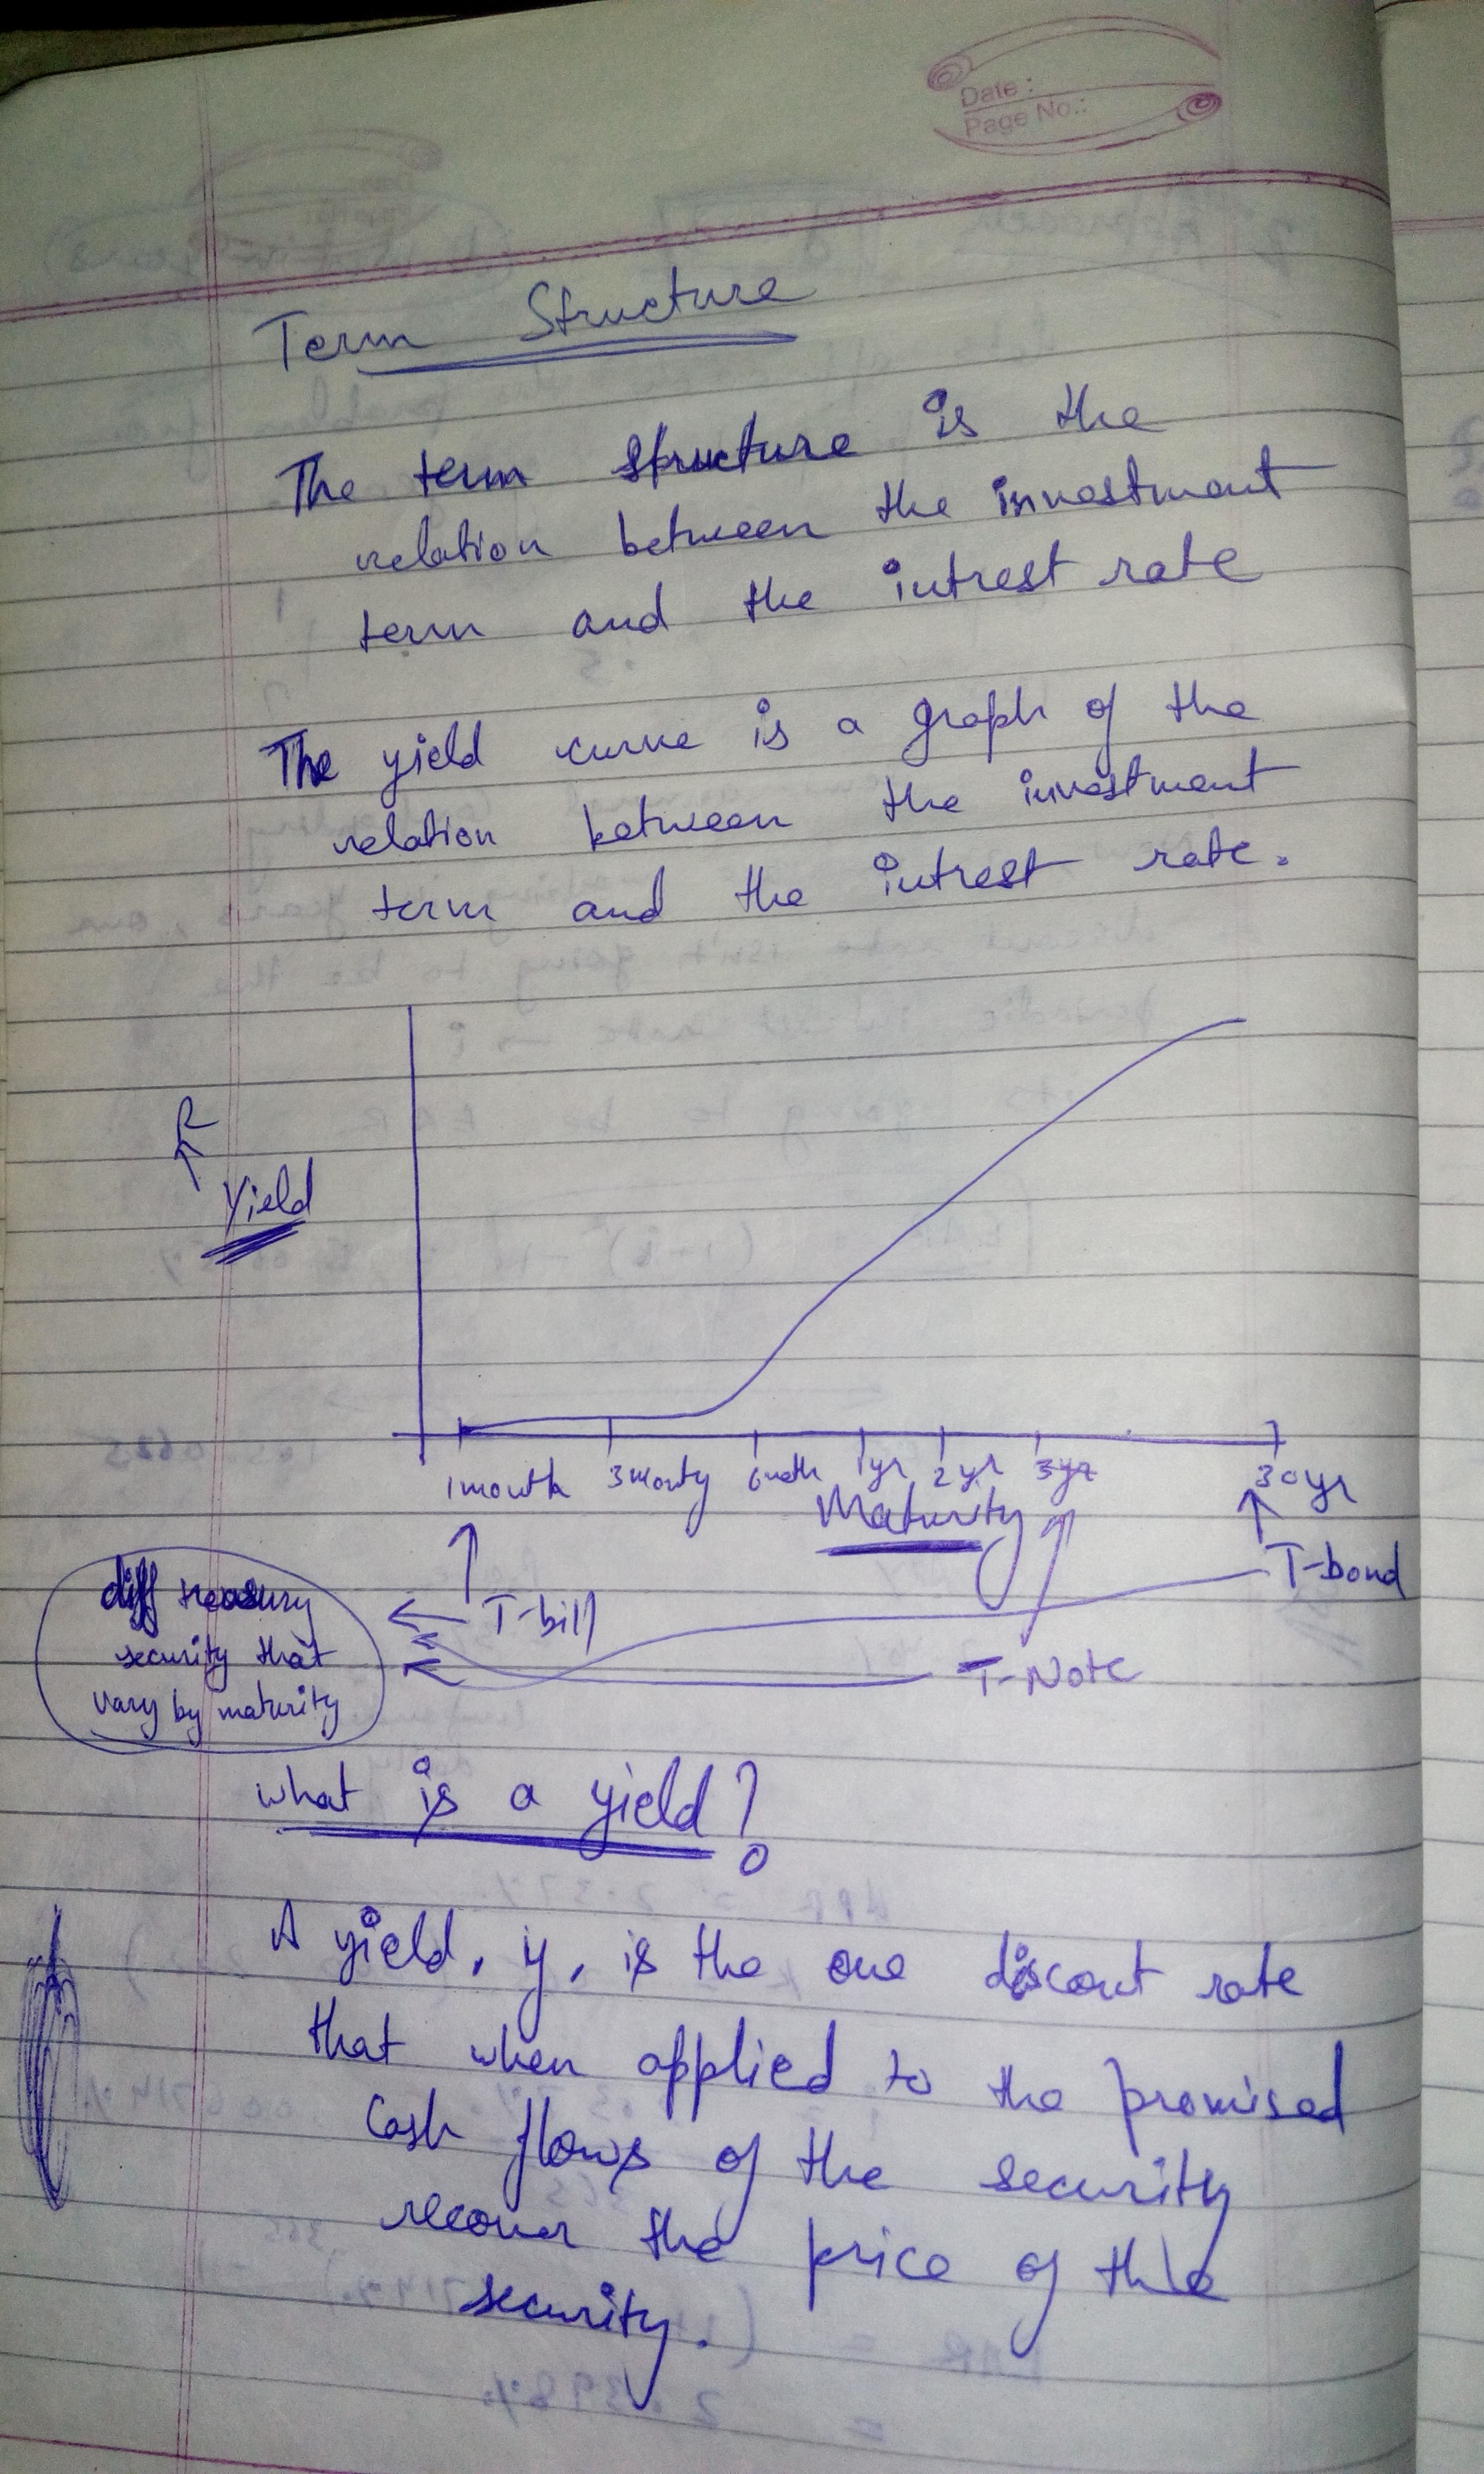 Date :
Page No.:
Term Structure
The term structure is the
relation between the investment
term and the intrest rate
The yield curve is a graph of the
relation between the investment
term and the intrest rate.
R
Yield
1 month 3 monty 6 moth 1yr 2 yr 3 yr 30 yr
Maturity
T-bond
diff treasury
security that
vary by maturity
T-bill
T-Note
what is a yield?
A yield, y, is the one discout rate
that when applied to the promised
Cash flows of the security
recover the price of the
security.